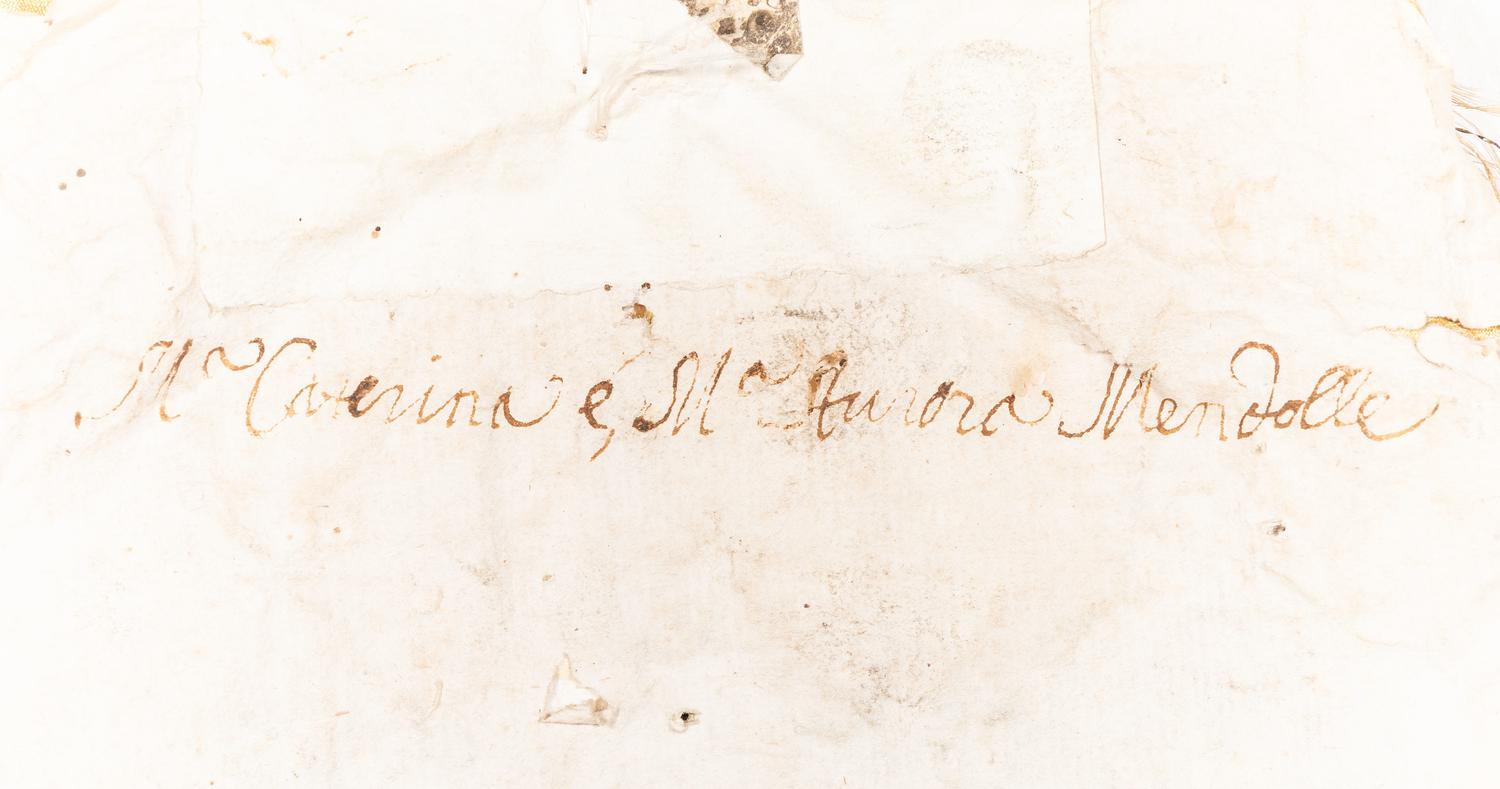 Mª Caterina é, Mª Aurora Mendolle